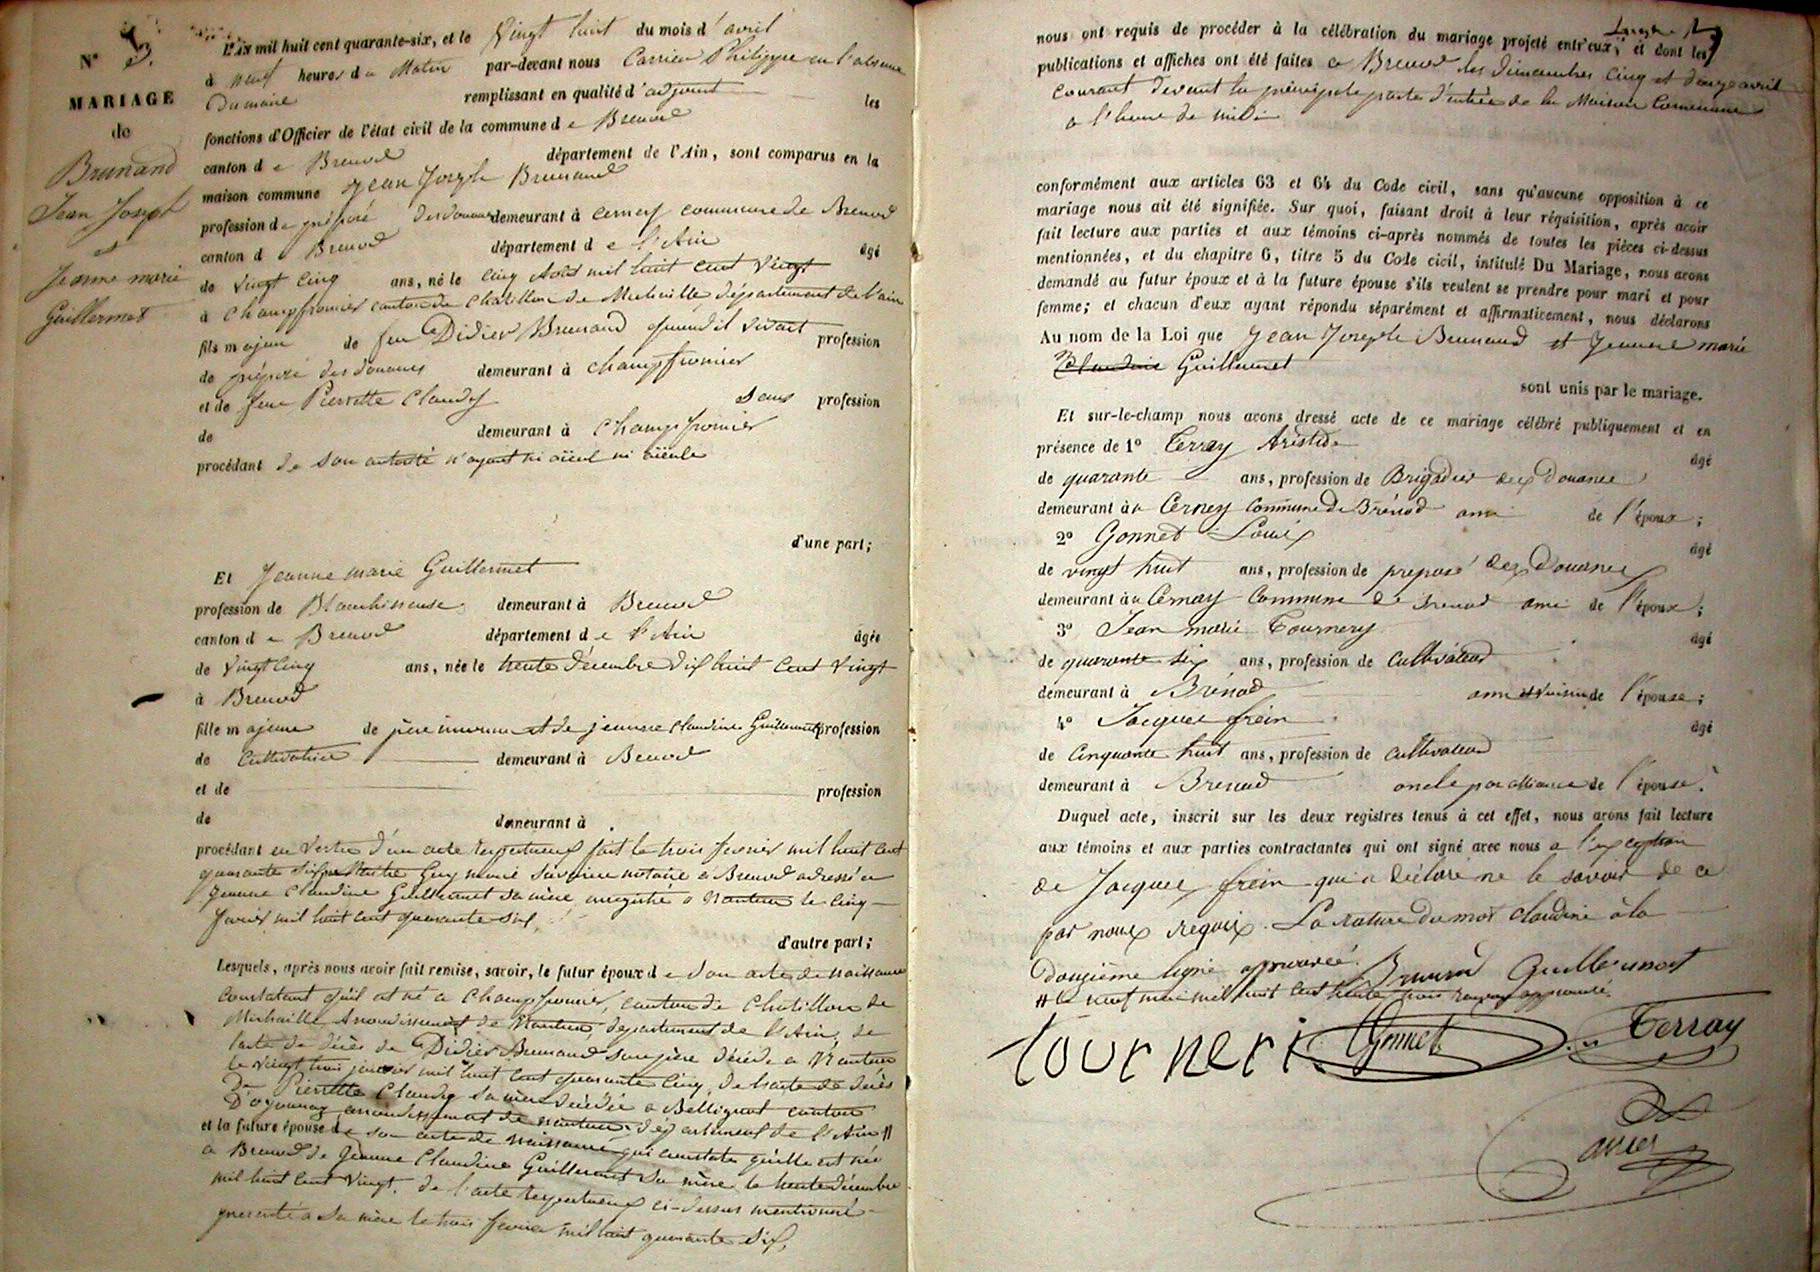 N° 3.
MARIAGE
de
Brunand
Jean Joseph
et
Jeanne marie
Guillermet
L'an mil huit cent quarante-six, et le Vingt huit du mois d'avril
à neuf heures du Matin par-devant nous Carrier Philippe en l'absence
Du maire remplissant en qualité d'adjoint les
fonctions d'Officier de l'état civil de la commune de Brenod
canton de Brenod département de l'Ain, sont comparus en la
maison commune Jean Joseph Brunand
profession de préposé des douanes demeurant à Cerney commune de Brenod
canton de Brenod département de l'Ain âgé
de vingt cinq ans, né le cinq Août mil huit cent vingt
à Champfromier canton de Chatillon de Michaille département de l'ain
fils majeur de feu Didier Brunand quand il vivait profession
de préposé des douanes demeurant à Champfromier
et de feue Pierrette Claudy Sans profession
de demeurant à Champfromier
procédant de son autorité n'ayant ni aïeul ni aïeule
d'une part;
Et Jeanne marie Guillermet
profession de Blanchisseuse demeurant à Brenod
canton de Brenod département de l'Ain âgée
de vingt cinq ans, née le trente décembre dix huit cent vingt
à Brenod
fille majeure de père inconnu et de jeanne claudine Guillermet profession
de Cultivatrice demeurant à Brenod
et de profession
de demeurant à
procédant en vertu d'un acte respectueux fait le trois fevrier mil huit cent
quarante six par Maitre Guy marie notaire à Brenod adressé a
jeanne Claudine Guillermet sa mère enregistré a Nantua le cinq
fevrier mil huit cent quarante six.
d'autre part;
Lesquels, après nous avoir fait remise, savoir, le futur époux de son acte de naissance
constatant qu'il est né a Champfromier, canton de Chatillon de
Michaille arrondissement de Nantua, departement de l'Ain, de
l'acte de décès de Didier Brunand son père décédé a Nantua
le vingt trois janvier mil huit cent quarante cinq, de l'acte de décès
De Pierrette Claudy sa mère décédée a Bellignat canton
D'oyonnaz arrondissement de nantua, département de l'Ain #
et la future épouse de son acte de naissance qui constate qu'elle est née
a Brenod de Jeanne Claudine Guillermet sa mère le trente décembre
mil huit cent vingt. de l'acte respectueux ci-dessus mentionné
presenté a sa mère le trois fevrier mil huit quarante six,
nous ont requis de procéder à la célébration du mariage projeté entr'eux, et dont les
publications et affiches ont été faites a Brenod les dimanches cinq et douze avril
courant devant la principale porte d'entrée de la Maison Commune
a l'heure de midi
conformément aux articles 63 et 64 du Code civil, sans qu'aucune opposition à ce
mariage nous ait été signifiée. Sur quoi, faisant droit à leur réquisition, après avoir
fait lecture aux parties et aux témoins ci-après nommés de toutes les pièces ci-dessus
mentionnées, et du chapitre 6, titre 5 du Code civil, intitulé Du Mariage, nous avons
demandé au futur époux et à la future épouse s'ils veulent se prendre pour mari et pour
femme; et chacun d'eux ayant répondu séparément et affirmativement, nous déclarons
Au nom de la Loi que Jean Joseph Brunand et Jeanne marie
Claudine Guillermet
sont unis par le mariage.
Et sur-le-champ nous avons dressé acte de ce mariage célébré publiquement et en
présence de 1° Terray Aristide âgé
de quarante ans, profession de Brigadier des Douanes
demeurant à Cerney commune de Brénod ami de l'époux;
2° Gonnet Louis âgé
de vingt huit ans, profession de préposé des Douanes
demeurant à Cernay commune de Brenod ami de l'époux;
3° Jean marie Tournery âgé
de quarante six ans, profession de Cultivateur
demeurant à Brénod ami et voisin de l'épouse;
4° Jacques frein âgé
de cinquante huit ans, profession de Cultivateur
demeurant à Brenod oncle par alliance de l'épouse.
Duquel acte, inscrit sur les deux registres tenus à cet effet, nous avons fait lecture
aux témoins et aux parties contractantes qui ont signé avec nous a l'exception
de Jacques frein qui a déclaré ne le savoir de ce
par nous requis. La rature du mot claudine à la
douzième ligne approuvée. Brunand Guillermet
# le neuf mai mil huit cent trente trois approuvé
Tourneri Gonnet Terray
Carrier